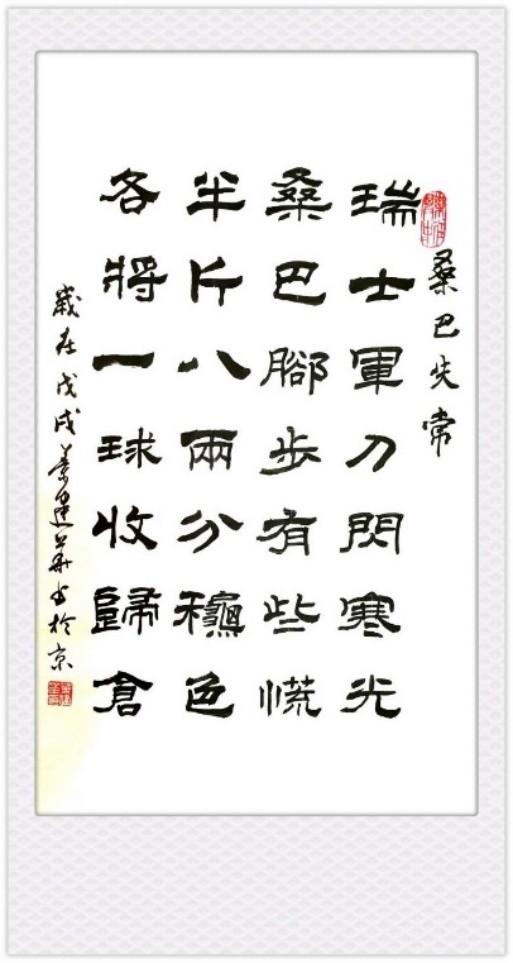 桑巴失常
瑞士軍刀閃寒光
桑巴腳步有些慌
半斤八兩分龝色
各將一球收歸倉
歲在戊戌 建華书於京